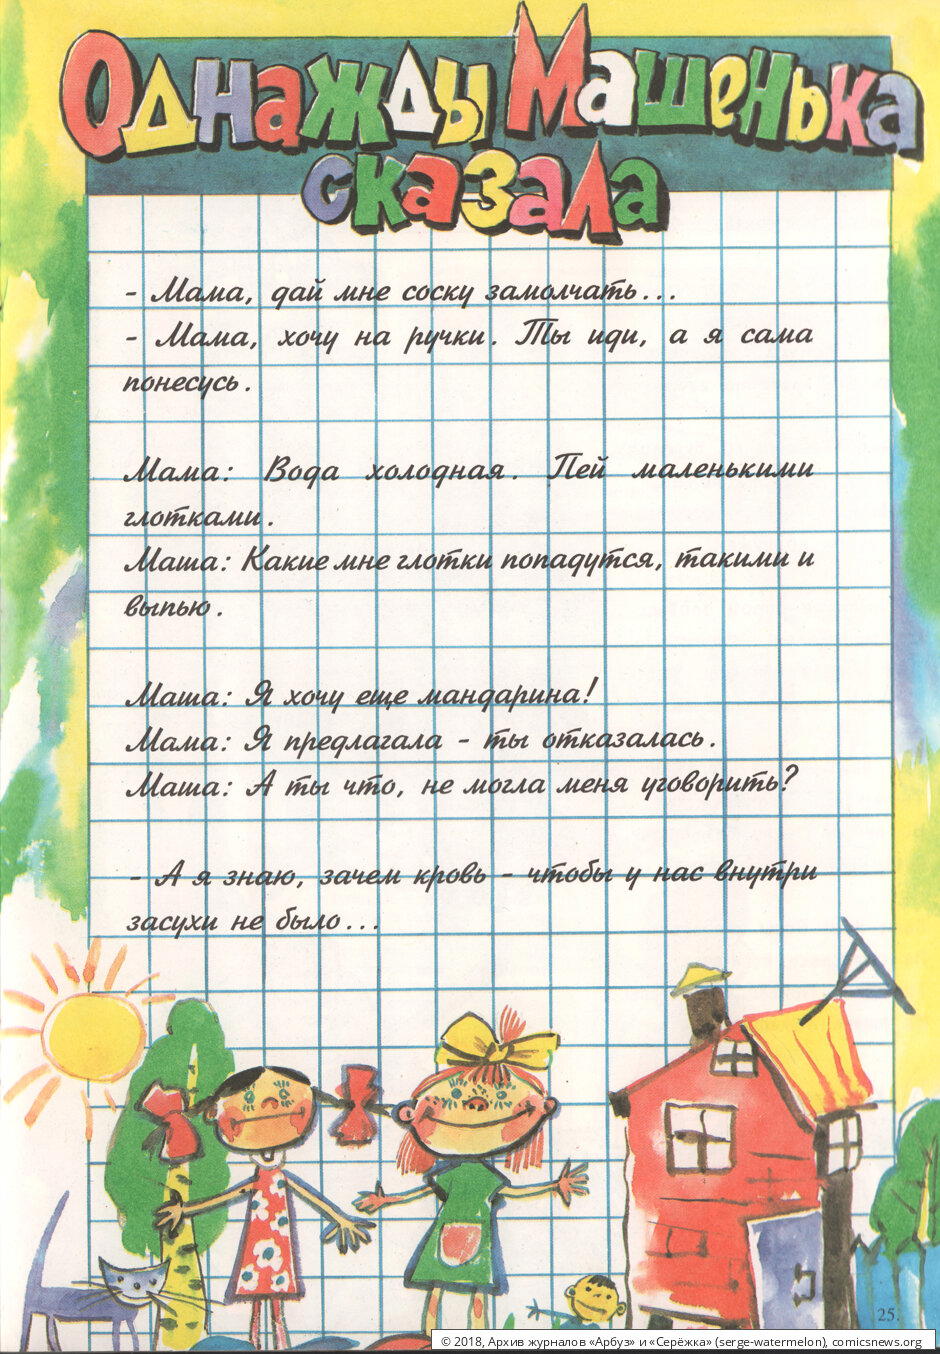 Однажды Машенька
сказала
- Мама, дай мне соску замолчать...
- Мама, хочу на ручки. Ты иди, а я сама
понесусь.
Мама: Вода холодная. Пей маленькими
глотками.
Маша: Какие мне глотки попадутся, такими и
выпью.
Маша: Я хочу еще мандарина!
Мама: Я предлагала - ты отказалась.
Маша: А ты что, не могла меня уговорить?
- А я знаю, зачем кровь - чтобы у нас внутри
засухи не было...
25.
© 2018, Архив журналов «Арбуз» и «Серёжка» (serge-watermelon), comicsnews.org